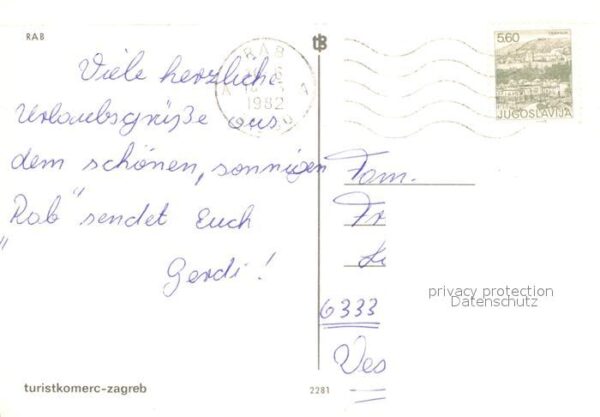 RAB
Viele herzliche
Urlaubsgrüße aus
dem schönen, sonnigen
"Rab" sendet Euch
Gerdi!
turistkomerc-zagreb
2281
tB
RAB
1982
5.60
JUGOSLAVIJA
Fam.
Fr
6333
Ves
privacy protection
Datenschutz